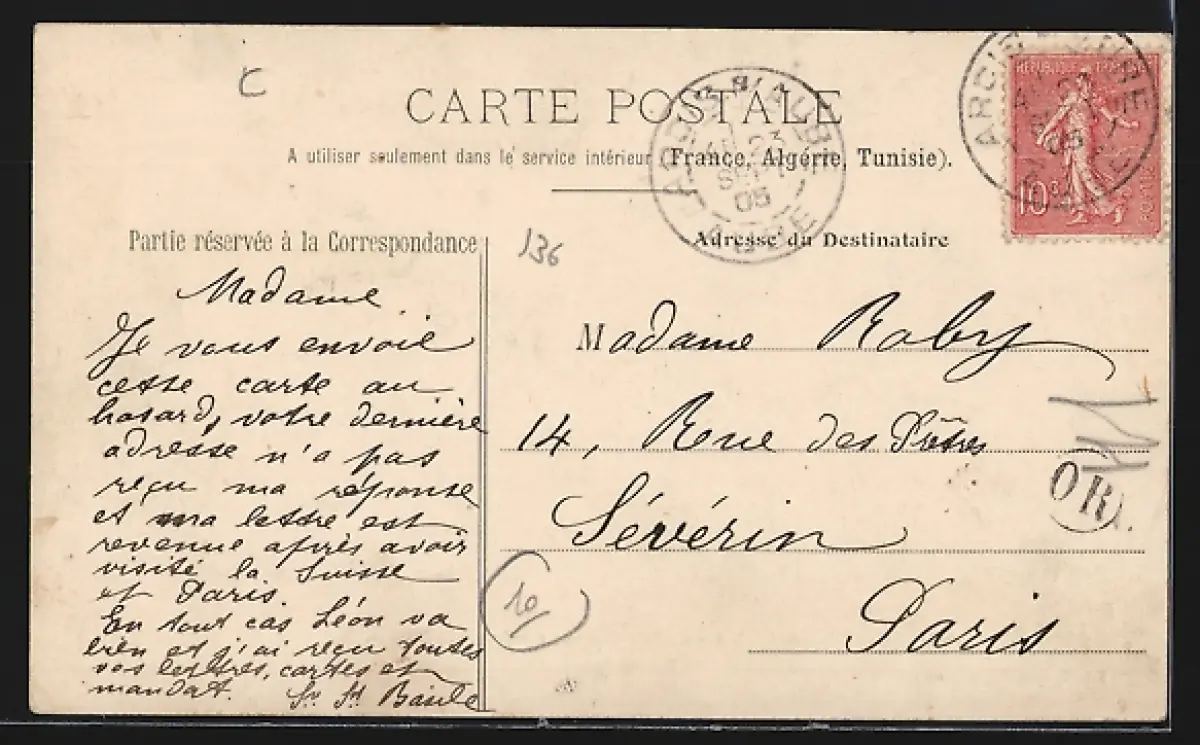 C
CARTE POSTALE
A utiliser seulement dans le service intérieur (France, Algérie, Tunisie).
ARCIS S/ AUBE
23
SEPT
05
AUBE
ARCIS S/ AUBE
23
05
AUBE
10
Partie réservée à la Correspondance
136
Adresse du Destinataire
Madame
Je vous envoie
cette carte au
hasard, votre dernière
adresse n'a pas
reçu ma réponse
et ma lettre est
revenue après avoir
visité la Suisse
et Paris.
En tout cas Léon va
bien et j'ai reçu toutes
vos lettres, cartes et
mandat. Sr St Basle
Madame Raby
14, Rue des Prêtres
Sévérin
Paris
OR
10